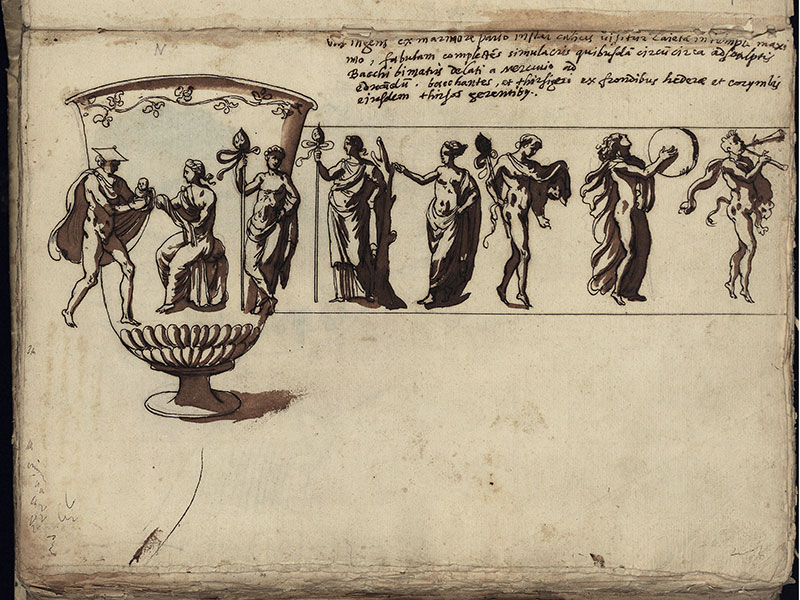 ingens ex marmore pario instar calicis visitur Caietæ in templo maxi
mo, fabulam complectēs simulacris quibusdā circū circa adsculptis
Bacchi bimatris delati a Mercurio ad
bacchantes, et thirsigeri ex frondibus hederæ et corymbis
eiusdem thirsos gerentiby.
N